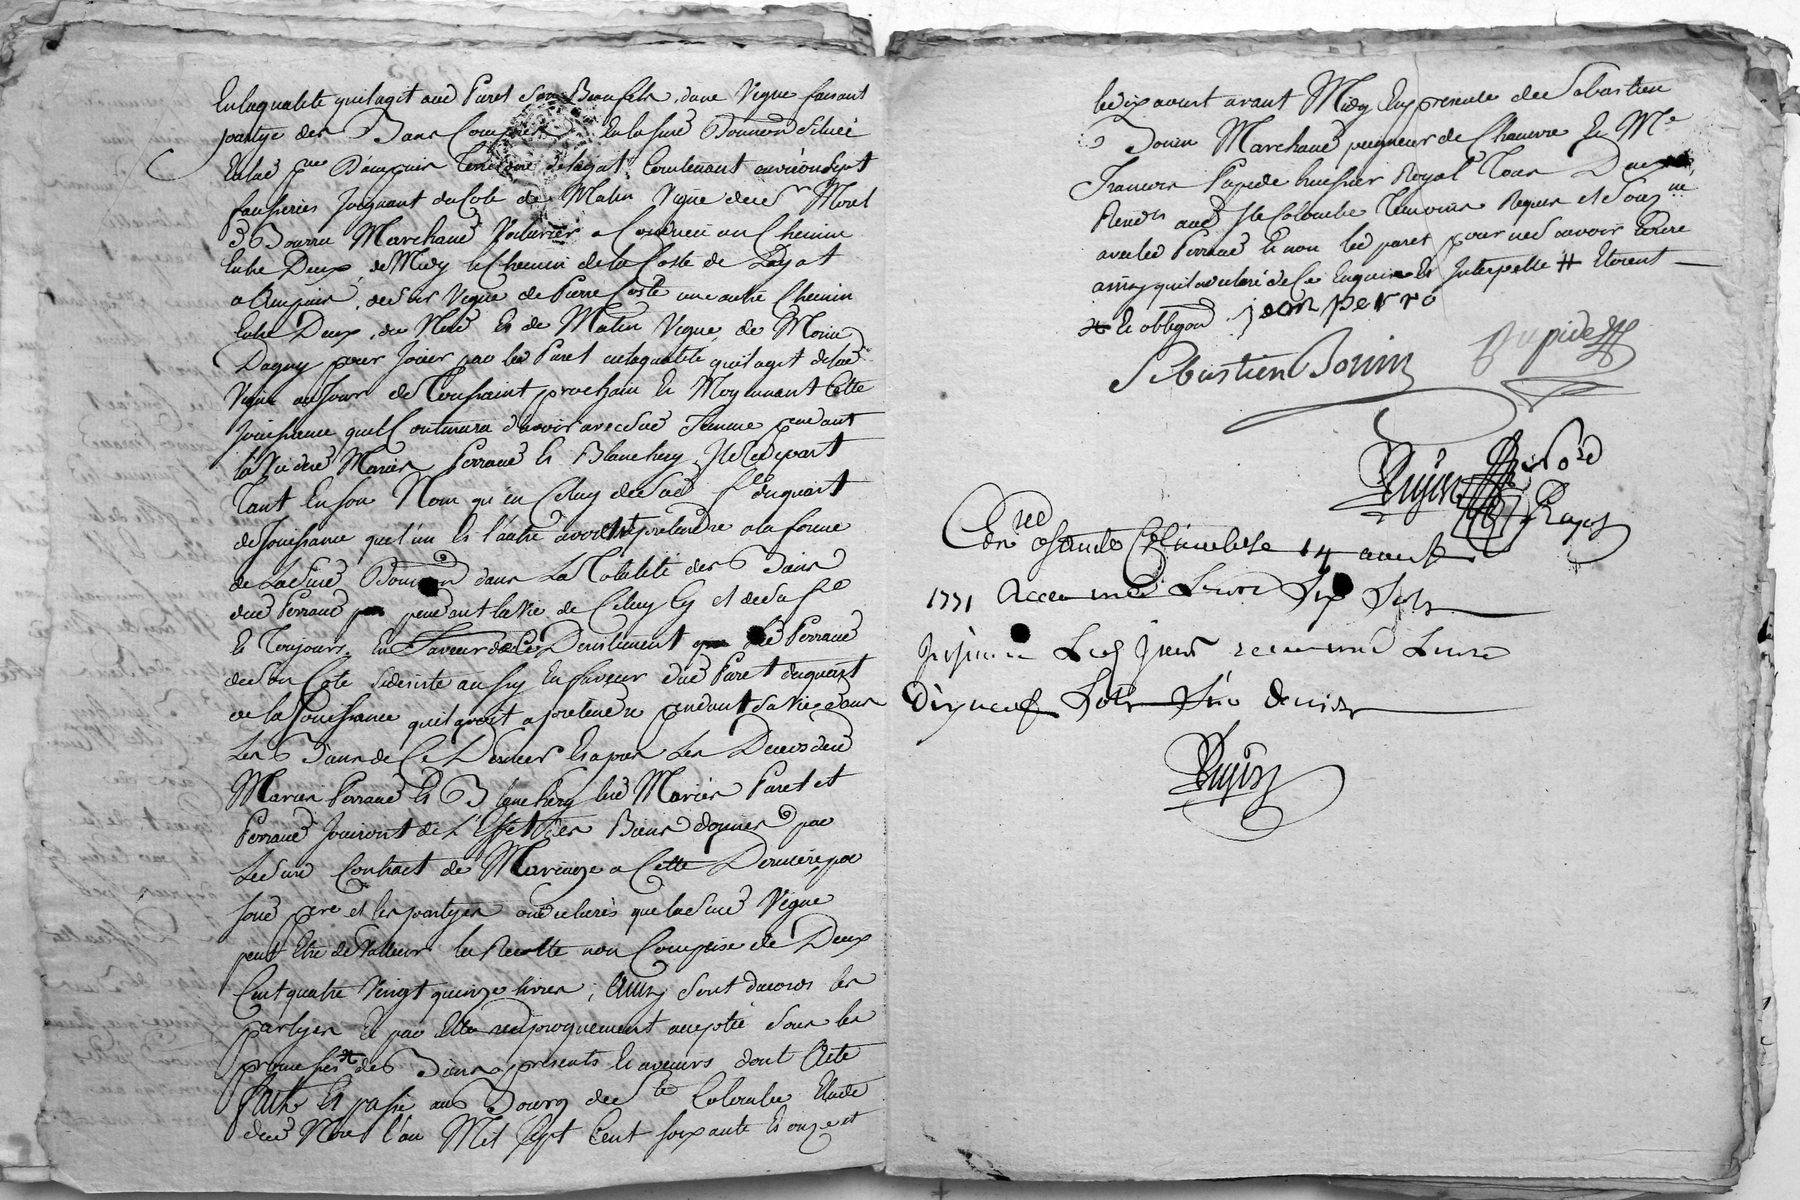 En la qualité quil agit aud Paret son Beaufils, dune Vigne faisant
partye des Biens Compris En la sue Donnôn Située
En lad pne D'ampuis Territoire de lagat Contenant environ Sept
fausserées Joignant du Coté de Matin Vigne du Sr Morel
Bourru Marchand Voiturier a Condrieu un Chemin
Entre Deux, de Midy le Chemin de la Coste de Layat
a Ampuis, de soir Vigne de Pierre Coste un autre Chemin
Entre Deux, du Nord Et de Matin Vigne de
Dagny pour Jouir par led Paret en la qualité quil agit de lad
Vigne au Jour de Toussaint prochain Et Moyennant Cette
Jouissance quil Continuera davoir avec sad Femme pendant
la Vie desd Mariés Perraud Et Blanchery, Il se depart
Tant En son Nom qu'en Celuy de sad fe du quart
de Jouissance que l'un Et l'autre avoit a pretendre a la forme
de la sud Donnôn dans La Totalité des Biens
dud Perraud pendant la vie de Celuy Cy et de sa fe
Et Toujours En Faveur de Ce Desistement led Perraud
de son Coté se desiste aussy En faveur dud Paret du quart
de la Jouissance quil avoit a pretendre pendant sa Vie dans
Les Biens de Ce Dernier Et apres Les Deces desd
Mariés Perraud Et Blanchery lesd Mariés Paret et
Perraud Jouiront de L'Effet des Biens donnés par
Le sud Contract de Mariage a Cette Derniere par
Sond pere et les partyes ont declarés que la sud Vigne
peut Etre de Valleur la Recolte non Comprise de Deux
Cent quatre Vingt quinze livres, Ainsy sont d'accord les
partyes Et par Elles reciproquement accepté sous les
promesses # des Biens presents Et avenirs dont Acte
fait Et passé aud Bourg de Ste Colombe Etude
dud Nore l'an Mil Sept Cent Soixante Et onze et
le dix aoust avant Midy En presence de Sebastien
Bouin Marchand peigneur de Chanvre Et Me
Francois Dupide huissier Royal Tous Deux
Residts aud Ste Colombe Temoins Requis et Sousnes
avec led Perraud Et non led paret pour ne Savoir Ecrire
ainsy quil a declaré de Ce Enquis Et Interpellé # Etoient
# Et obligôn Jean perro
Sebastien Bouin Dupide
Nore
Royal
Conrôllé a Sainte Colombe le 14 aoust
1771 Recu une Livre Six Sols
Insinué Led Jour recu une Livre
Dixneuf Sols Six deniers